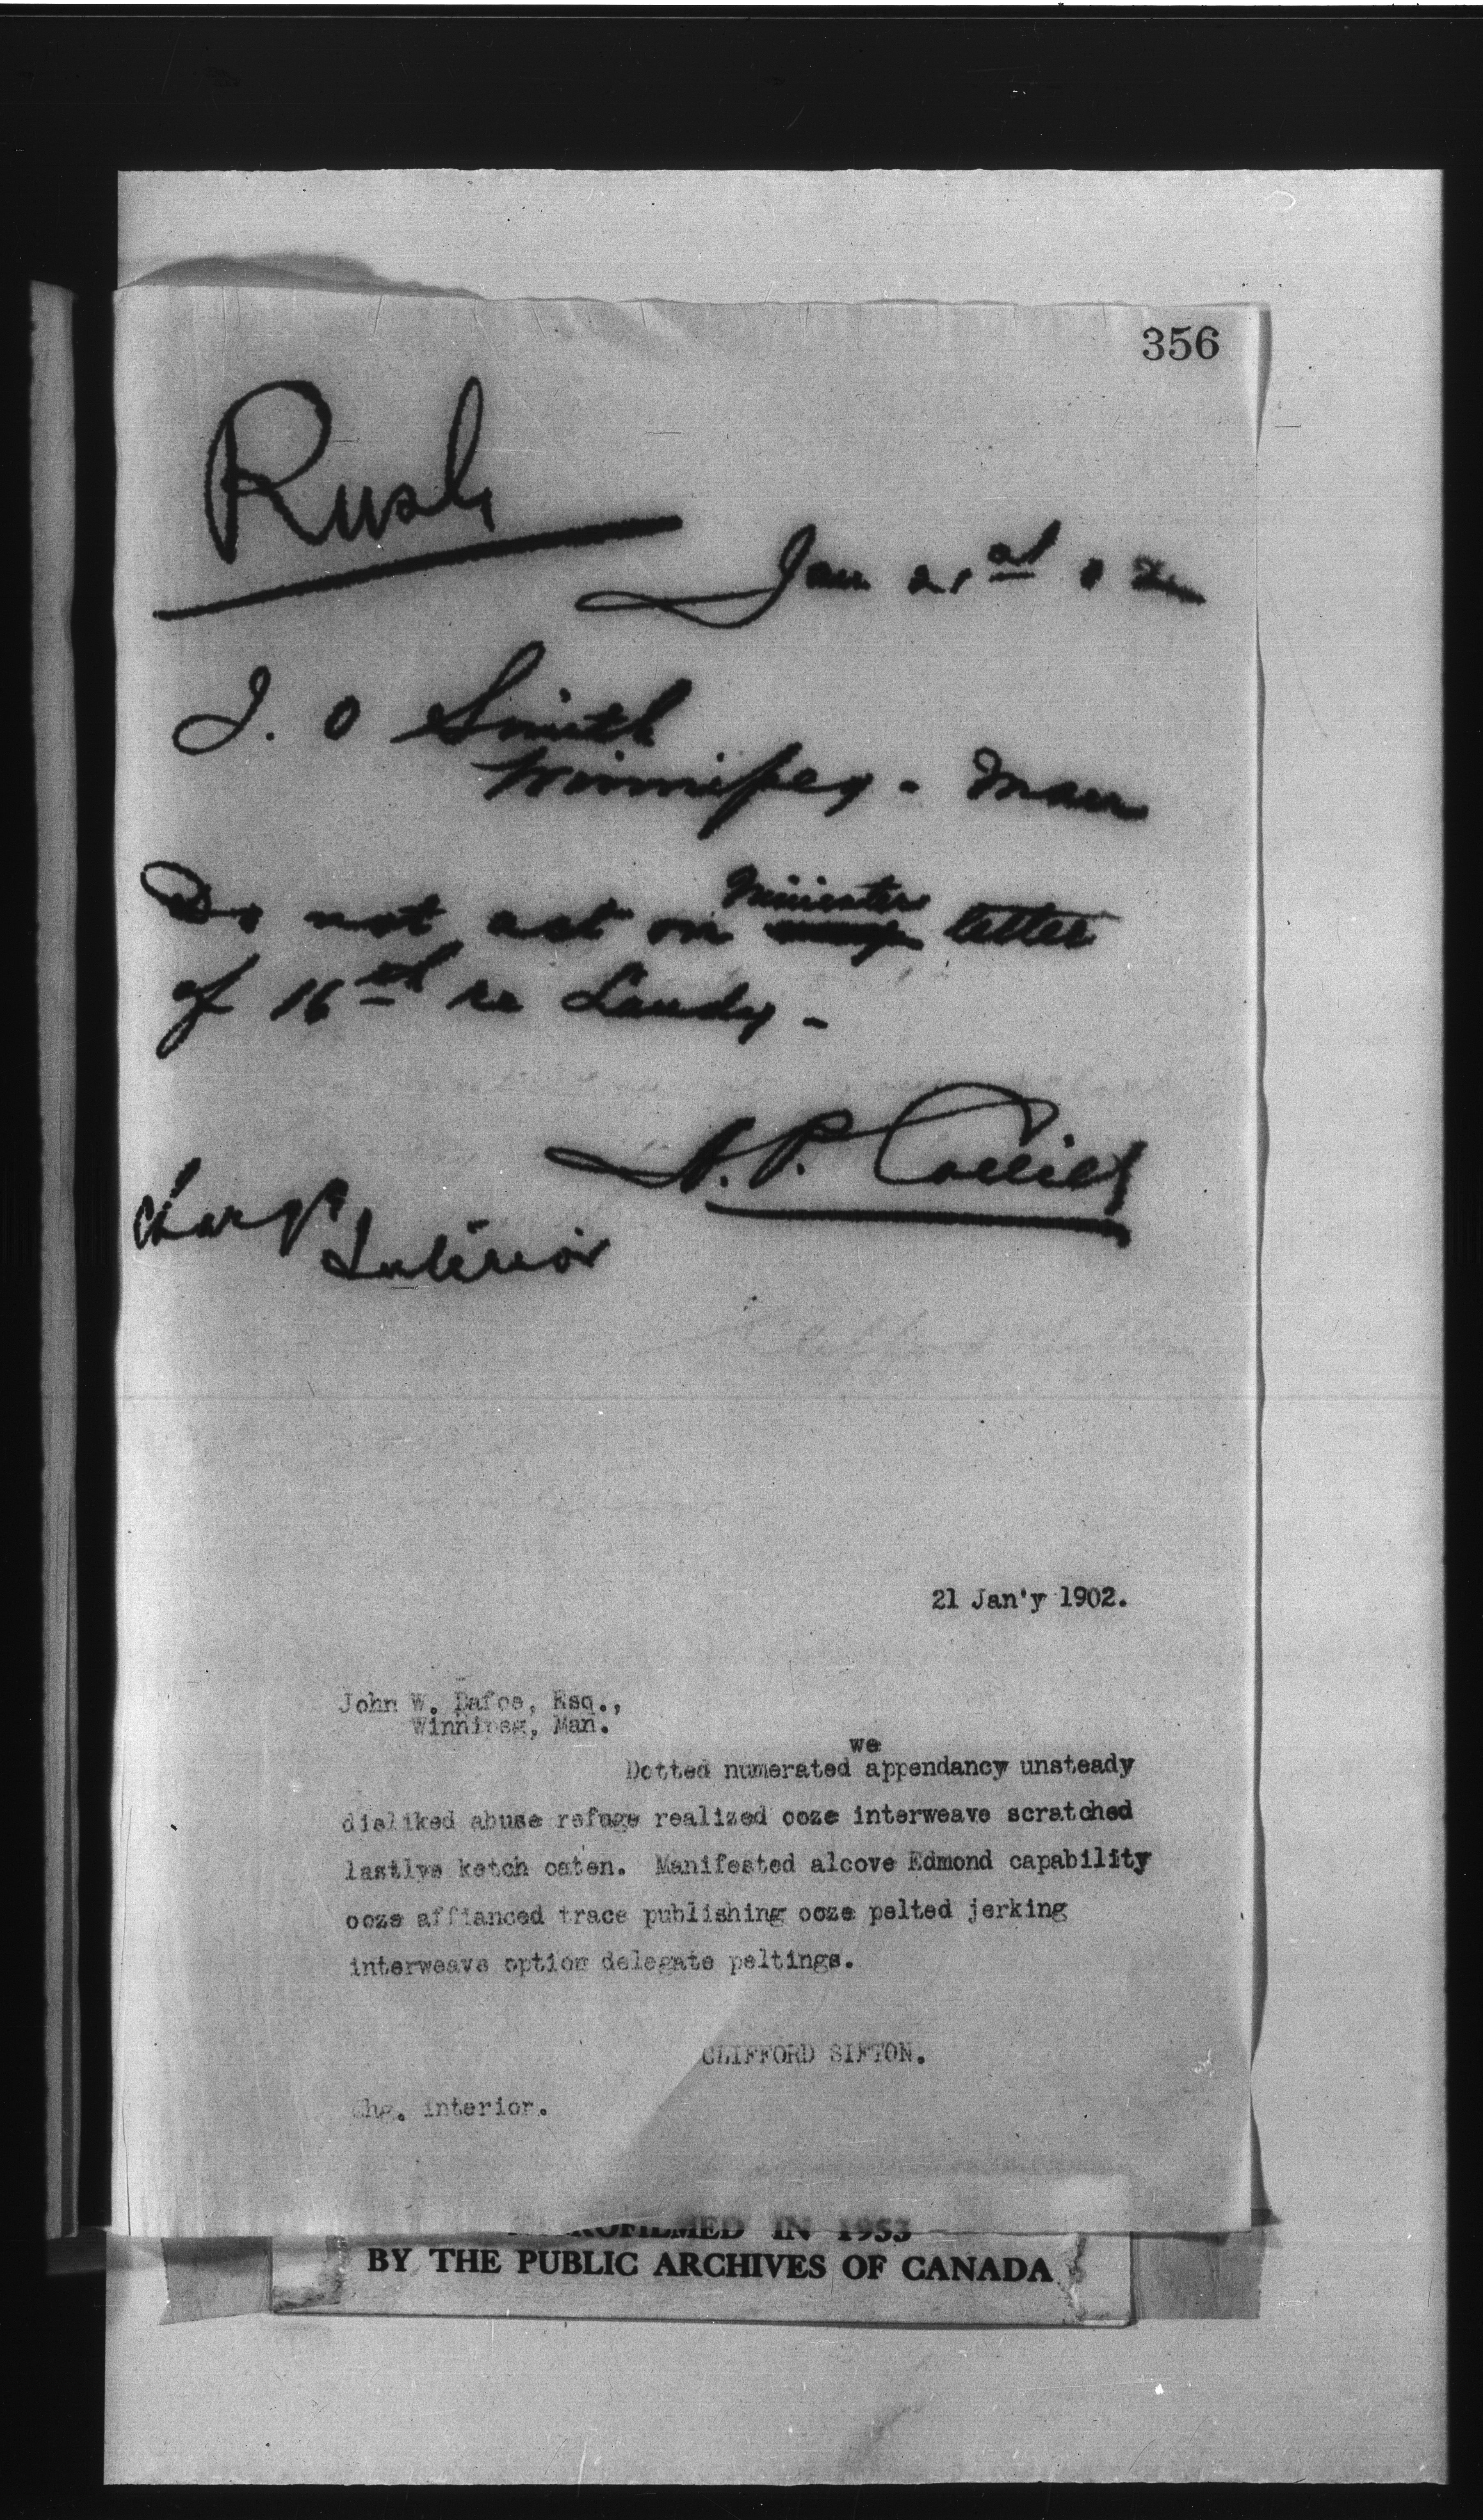 356
Rush
Jan 21st 02
J. O Smith
Winnipeg - Man
Ministers
Do not act on letter
of 16th re Landy -
A. P. Collier
Charge
Interior
21 Jan'y 1902.
John W. Dafoe, Esq.,
Winnipeg, Man.
we
Dotted numerated appendancy unsteady
disliked abuse refuge realized ooze interweave scratched
lastlye ketch oaten. Manifested alcove Edmond capability
ooze affianced trace publishing ooze pelted jerking
interweave option delegate peltings.
CLIFFORD SIFTON.
Chg. interior.
MICROFILMED IN 1953
BY THE PUBLIC ARCHIVES OF CANADA